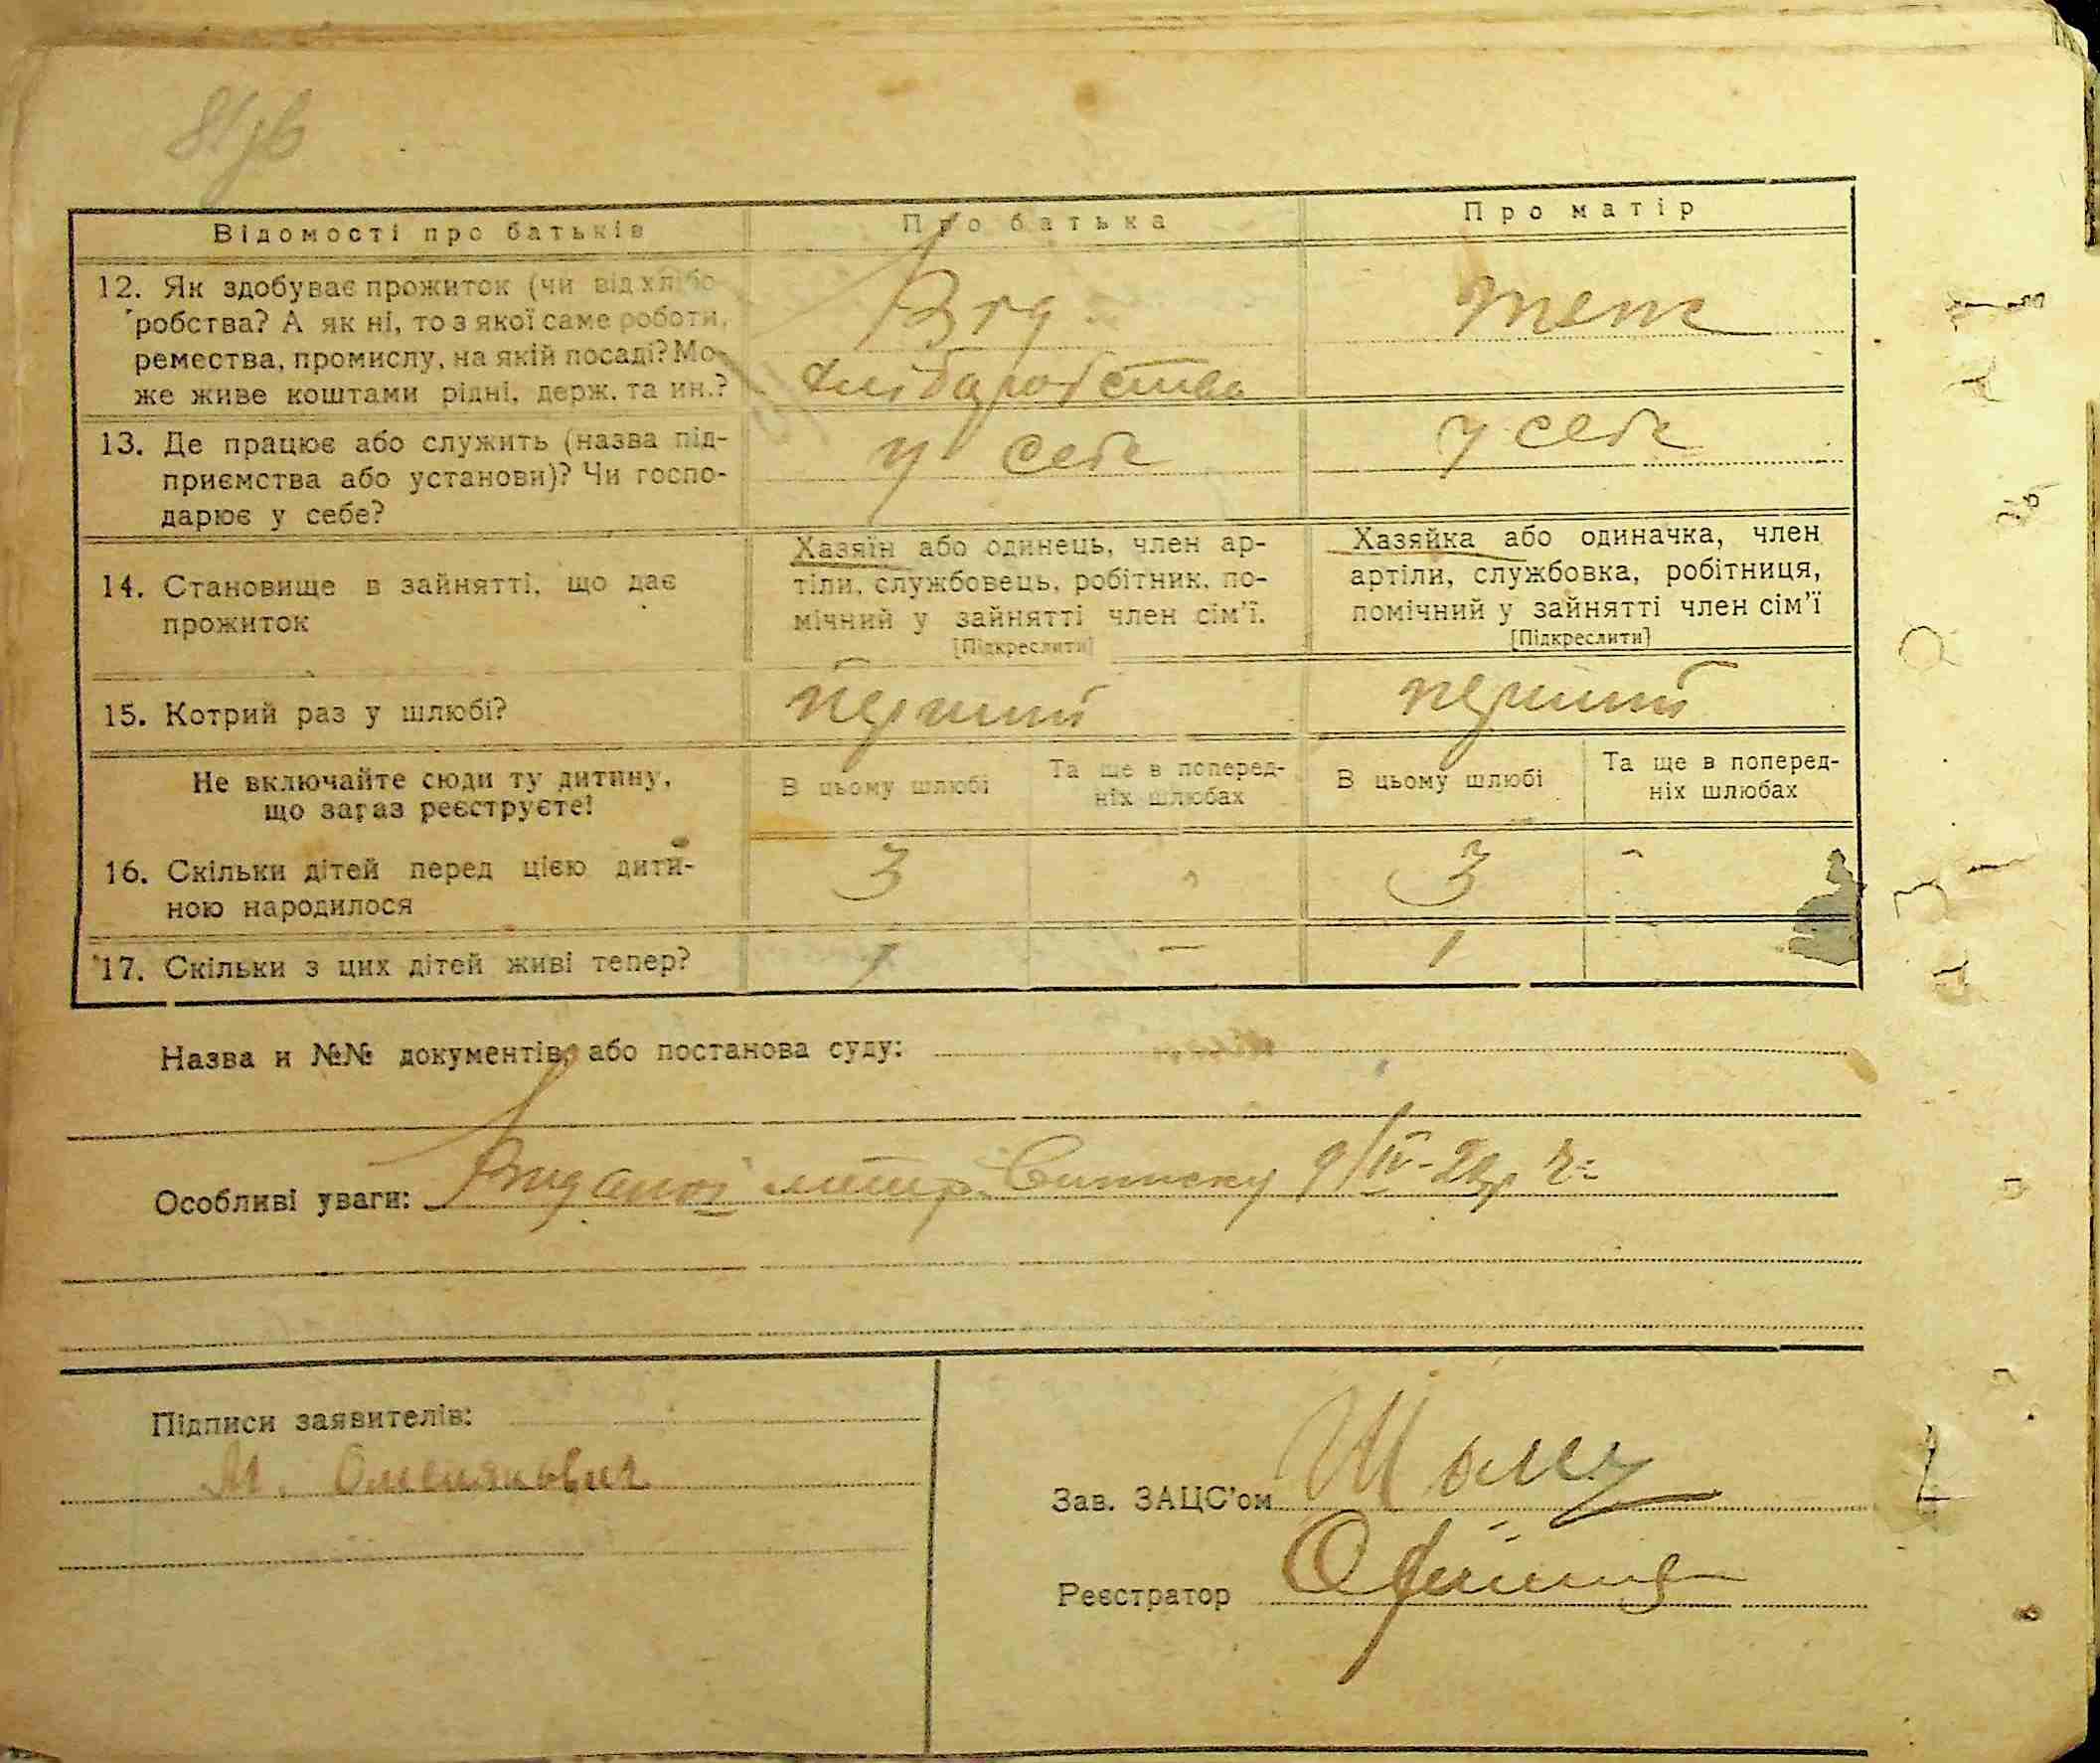 81зв
Відомості про батьків
Про батька
Про матір
12. Як здобуває прожиток (чи від хлібо
робства? А як ні, то з якої саме роботи,
ремества, промислу, на якій посаді? Мо-
же живе коштами рідні, держ. та ин.?
Від
хліборобства
теж
13. Де працює або служить (назва під-
приємства або установи)? Чи госпо-
дарює у себе?
у себе
у себе
14. Становище в зайнятті, що дає
прожиток
Хазяїн або одинець, член ар-
тіли, службовець, робітник, по-
мічний у зайнятті член сім'ї.
[Підкреслити]
Хазяйка або одиначка, член
артіли, службовка, робітниця,
помічний у зайнятті член сім'ї
[Підкреслити]
15. Котрий раз у шлюбі?
перший
перший
Не включайте сюди ту дитину,
що зараз реєструєте!
В цьому шлюбі
Та ще в поперед-
ніх шлюбах
В цьому шлюбі
Та ще в поперед-
ніх шлюбах
16. Скільки дітей перед цією дити-
ною народилося
3
-
3
-
17. Скільки з цих дітей живі тепер?
1
-
1
Назва и №№ документів, або постанова суду:
Особливі уваги: 9/IV-29 р
Підписи заявителів:
М. Омелякович
Зав. ЗАЦС'ом
Реєстратор